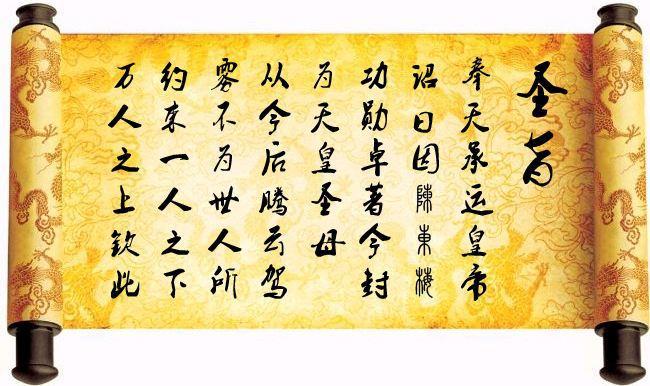 圣旨
奉天承运皇帝
诏曰因陳東梅
功勋卓著今封
为天皇圣母
从今后腾云驾
雾不为世人所
约束一人之下
万人之上钦此